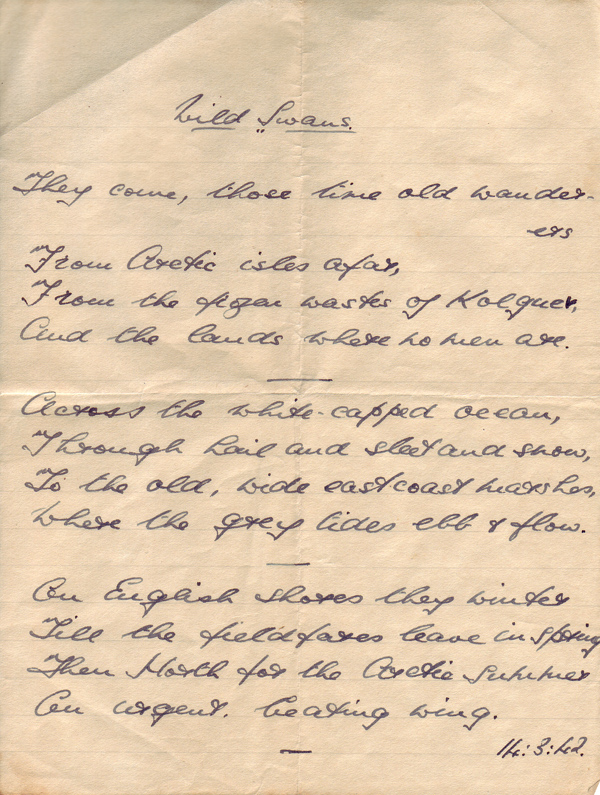 Wild Swans.
They come, those time old wander-
ers
From Arctic isles afar,
From the frozen wastes of Kolguer,
And the lands where no men are.
Across the white-capped ocean,
Through hail and sleet and snow,
To the old, wide east coast marshes,
Where the grey tides ebb & flow.
On English shores they winter
Till the fieldfares leave in spring
Then North for the Arctic Summer
On urgent. beating wing.
14:3:42.